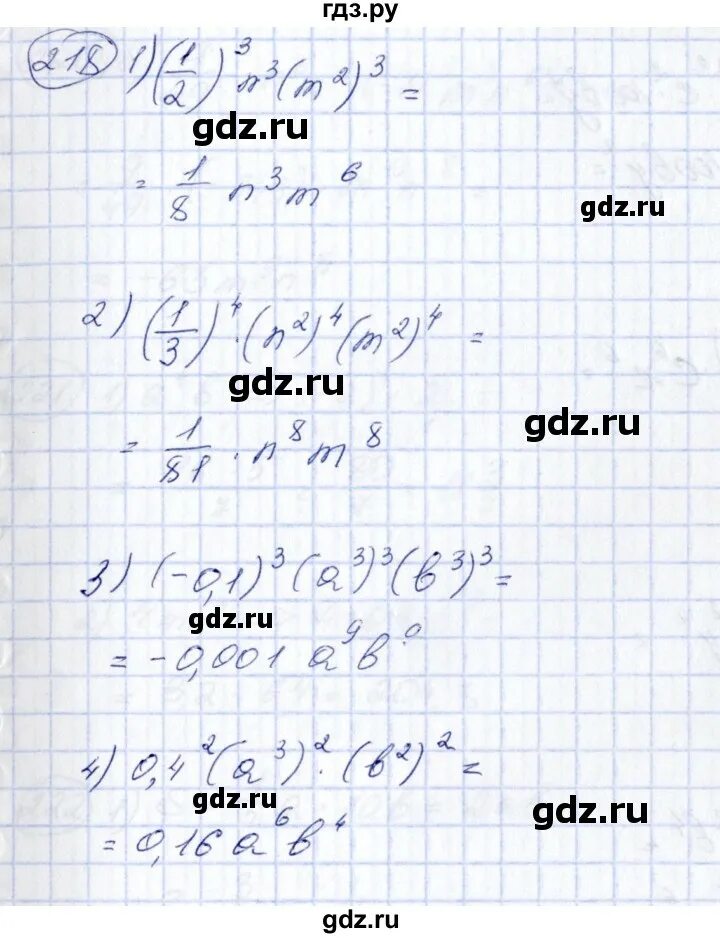 гдз.ру
218 1) (1/2)³ n³ (m²)³ =
gdz.ru
= 1/8 n³ m⁶
gdz.ru
2) (1/3)⁴ · (n²)⁴ (m²)⁴ =
gdz.ru
= 1/81 · n⁸ m⁸
gdz.ru
3) (-0,1)³ (a³)³ (b³)³ =
gdz.ru
= -0,001 a⁹ b⁹
4) 0,4² (a³)² · (b²)² =
gdz.ru
gdz.ru
= 0,16 a⁶ b⁴
gdz.ru